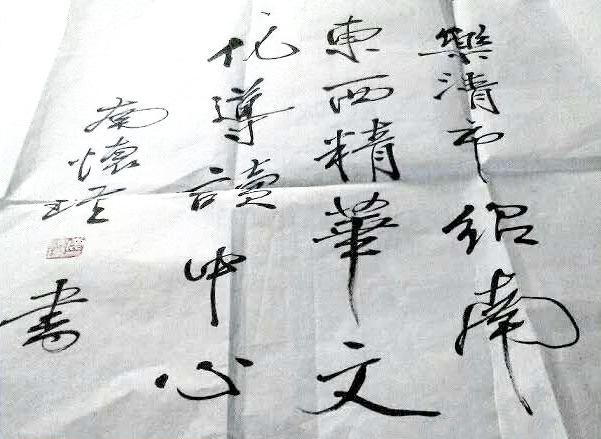 樂清市紹南
東西精華文
化導讀中心
南懷瑾
書